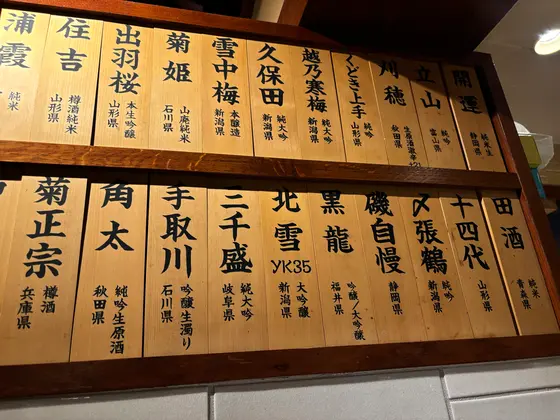 開運
純米生
静岡県
立山
純吟
富山県
刈穂
生原酒激辛
+21
秋田県
くどき上手
純吟
山形県
越乃寒梅
純大吟
新潟県
久保田
純大吟
新潟県
雪中梅
本醸造
新潟県
菊姫
山廃純米
石川県
出羽桜
本生吟醸
山形県
住吉
樽酒純米
山形県
浦霞
純米
田酒
純米
青森県
十四代
山形県
〆張鶴
純吟
新潟県
磯自慢
静岡県
黒龍
吟醸/大吟醸
福井県
北雪
YK35
大吟醸
新潟県
三千盛
純大吟
岐阜県
手取川
吟醸生濁り
石川県
角太
純吟生原酒
秋田県
菊正宗
樽酒
兵庫県